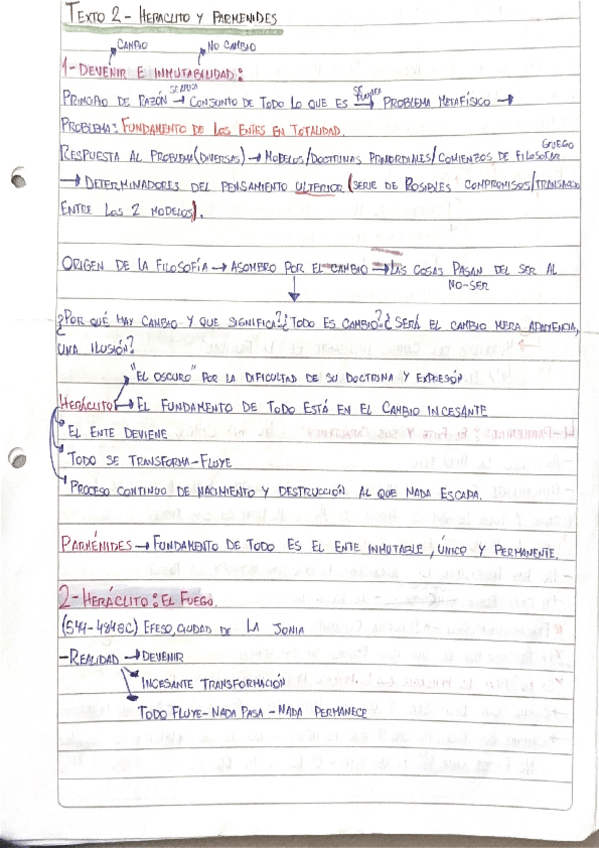 TEXTO 2 - HERACLITO Y PARMENIDES
CAMBIO NO CAMBIO
1- DEVENIR E INMUTABILIDAD:
PRINCIPIO DE RAZÓN → CONJUNTO DE TODO LO QUE ES → PROBLEMA METAFÍSICO →
PROBLEMA: FUNDAMENTO DE LOS ENTES EN TOTALIDAD.
GRIEGO
RESPUESTA AL PROBLEMA (DIVERSAS) → MODELOS/DOCTRINAS PRIMORDIALES/COMIENZOS DE FILOSOFAR
→ DETERMINADORES DEL PENSAMIENTO ULTERIOR (SERIE DE POSIBLES COMPROMISOS/TRANSACCIO
ENTRE LOS 2 MODELOS).
ORIGEN DE LA FILOSOFÍA → ASOMBRO POR EL CAMBIO → LAS COSAS PASAN DEL SER AL
NO-SER
¿POR QUÉ HAY CAMBIO Y QUE SIGNIFICA? ¿TODO ES CAMBIO? ¿SERÁ EL CAMBIO MERA APARIENCIA,
UNA ILUSIÓN?
"EL OSCURO" POR LA DIFICULTAD DE SU DOCTRINA Y EXPRESIÓN
HERÁCLITO → EL FUNDAMENTO DE TODO ESTÁ EN EL CAMBIO INCESANTE
EL ENTE DEVIENE
TODO SE TRANSFORMA - FLUYE
PROCESO CONTINUO DE NACIMIENTO Y DESTRUCCIÓN AL QUE NADA ESCAPA.
PARMÉNIDES → FUNDAMENTO DE TODO ES EL ENTE INMUTABLE, ÚNICO Y PERMANENTE.
2- HERÁCLITO: EL FUEGO.
(544-484BC) EFESO, CIUDAD DE LA JONIA
- REALIDAD → DEVENIR
INCESANTE TRANSFORMACIÓN
TODO FLUYE - NADA PASA - NADA PERMANECE